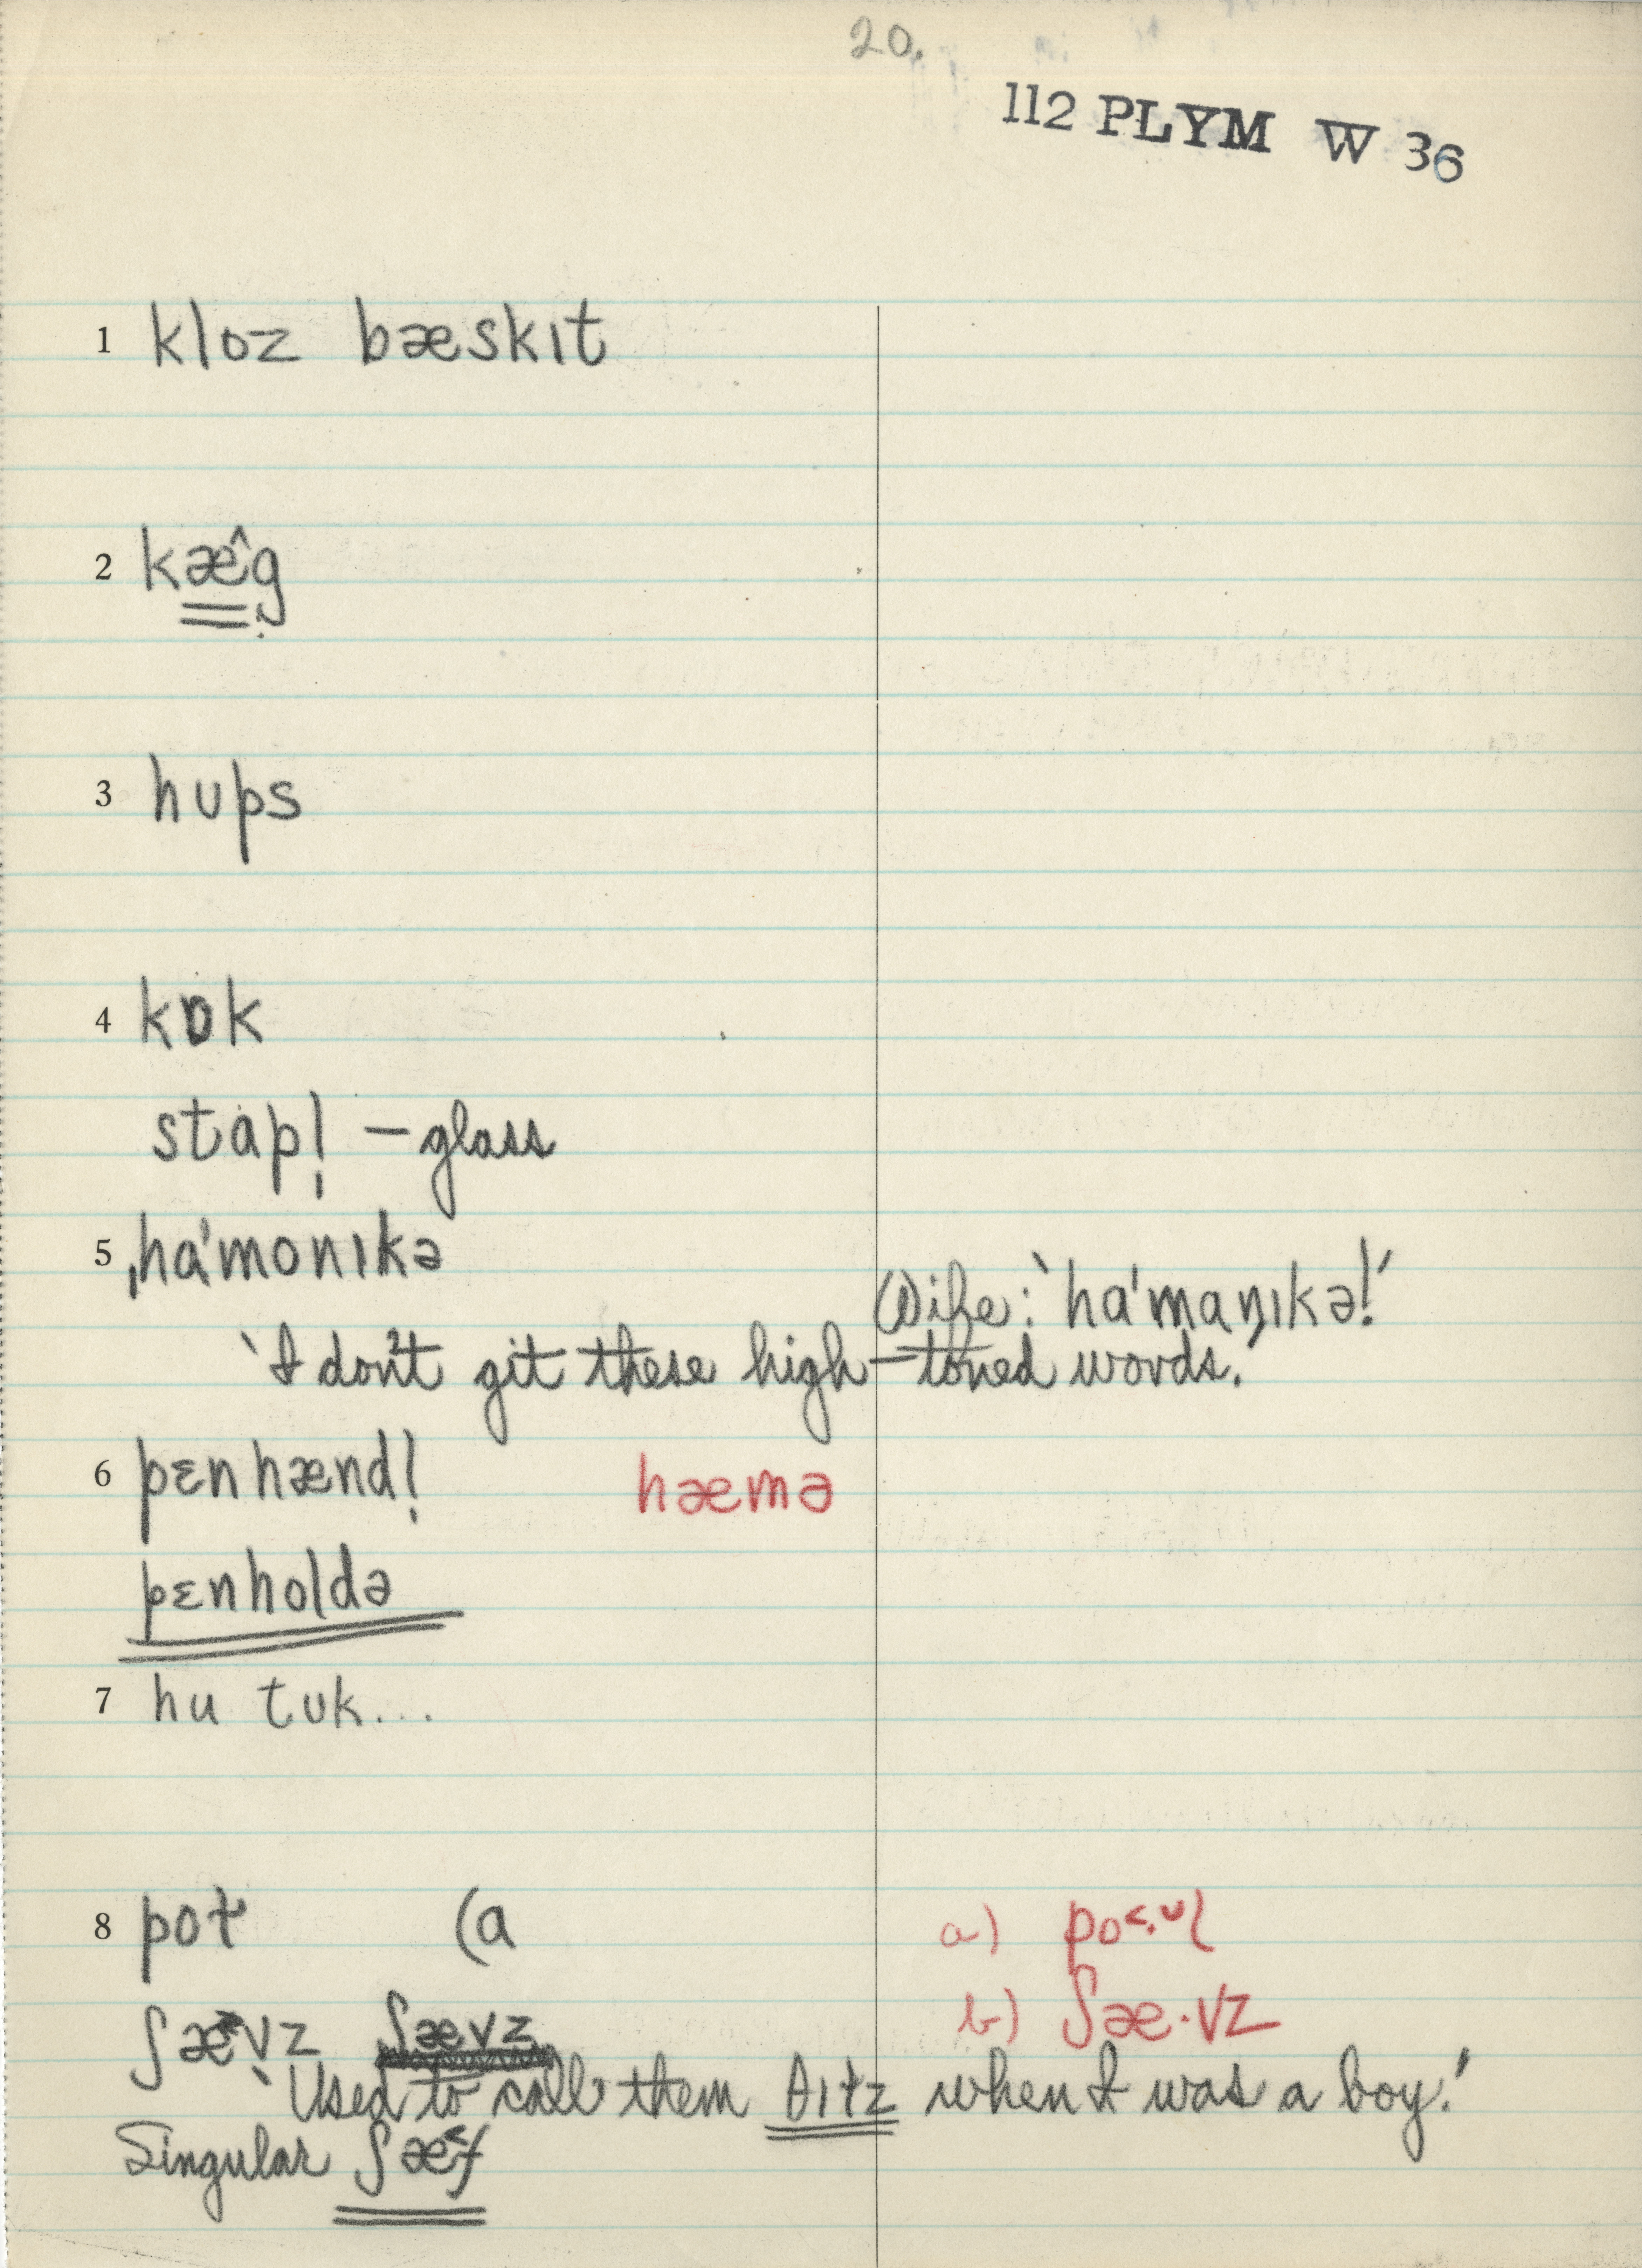 20.
112 PLYM W 36
1 kloz bæskɪt
2 kæ̂g
3 hʊps
4 kɒk
stap! – glass
5 ˌha'monɪkə
Wife: 'ha'maṇɪkə!'
'I don't git these high-toned words.'
6 pɛnhænd! hæmə
pɛnholdə
7 hu tʊk...
8 poɫ (a a) po˂·ᵕl
ʃæ˃vz ʃævz b) ʃæ·vz
'Used to call them θɪɫz when I was a boy.'
Singular ʃæ˂f